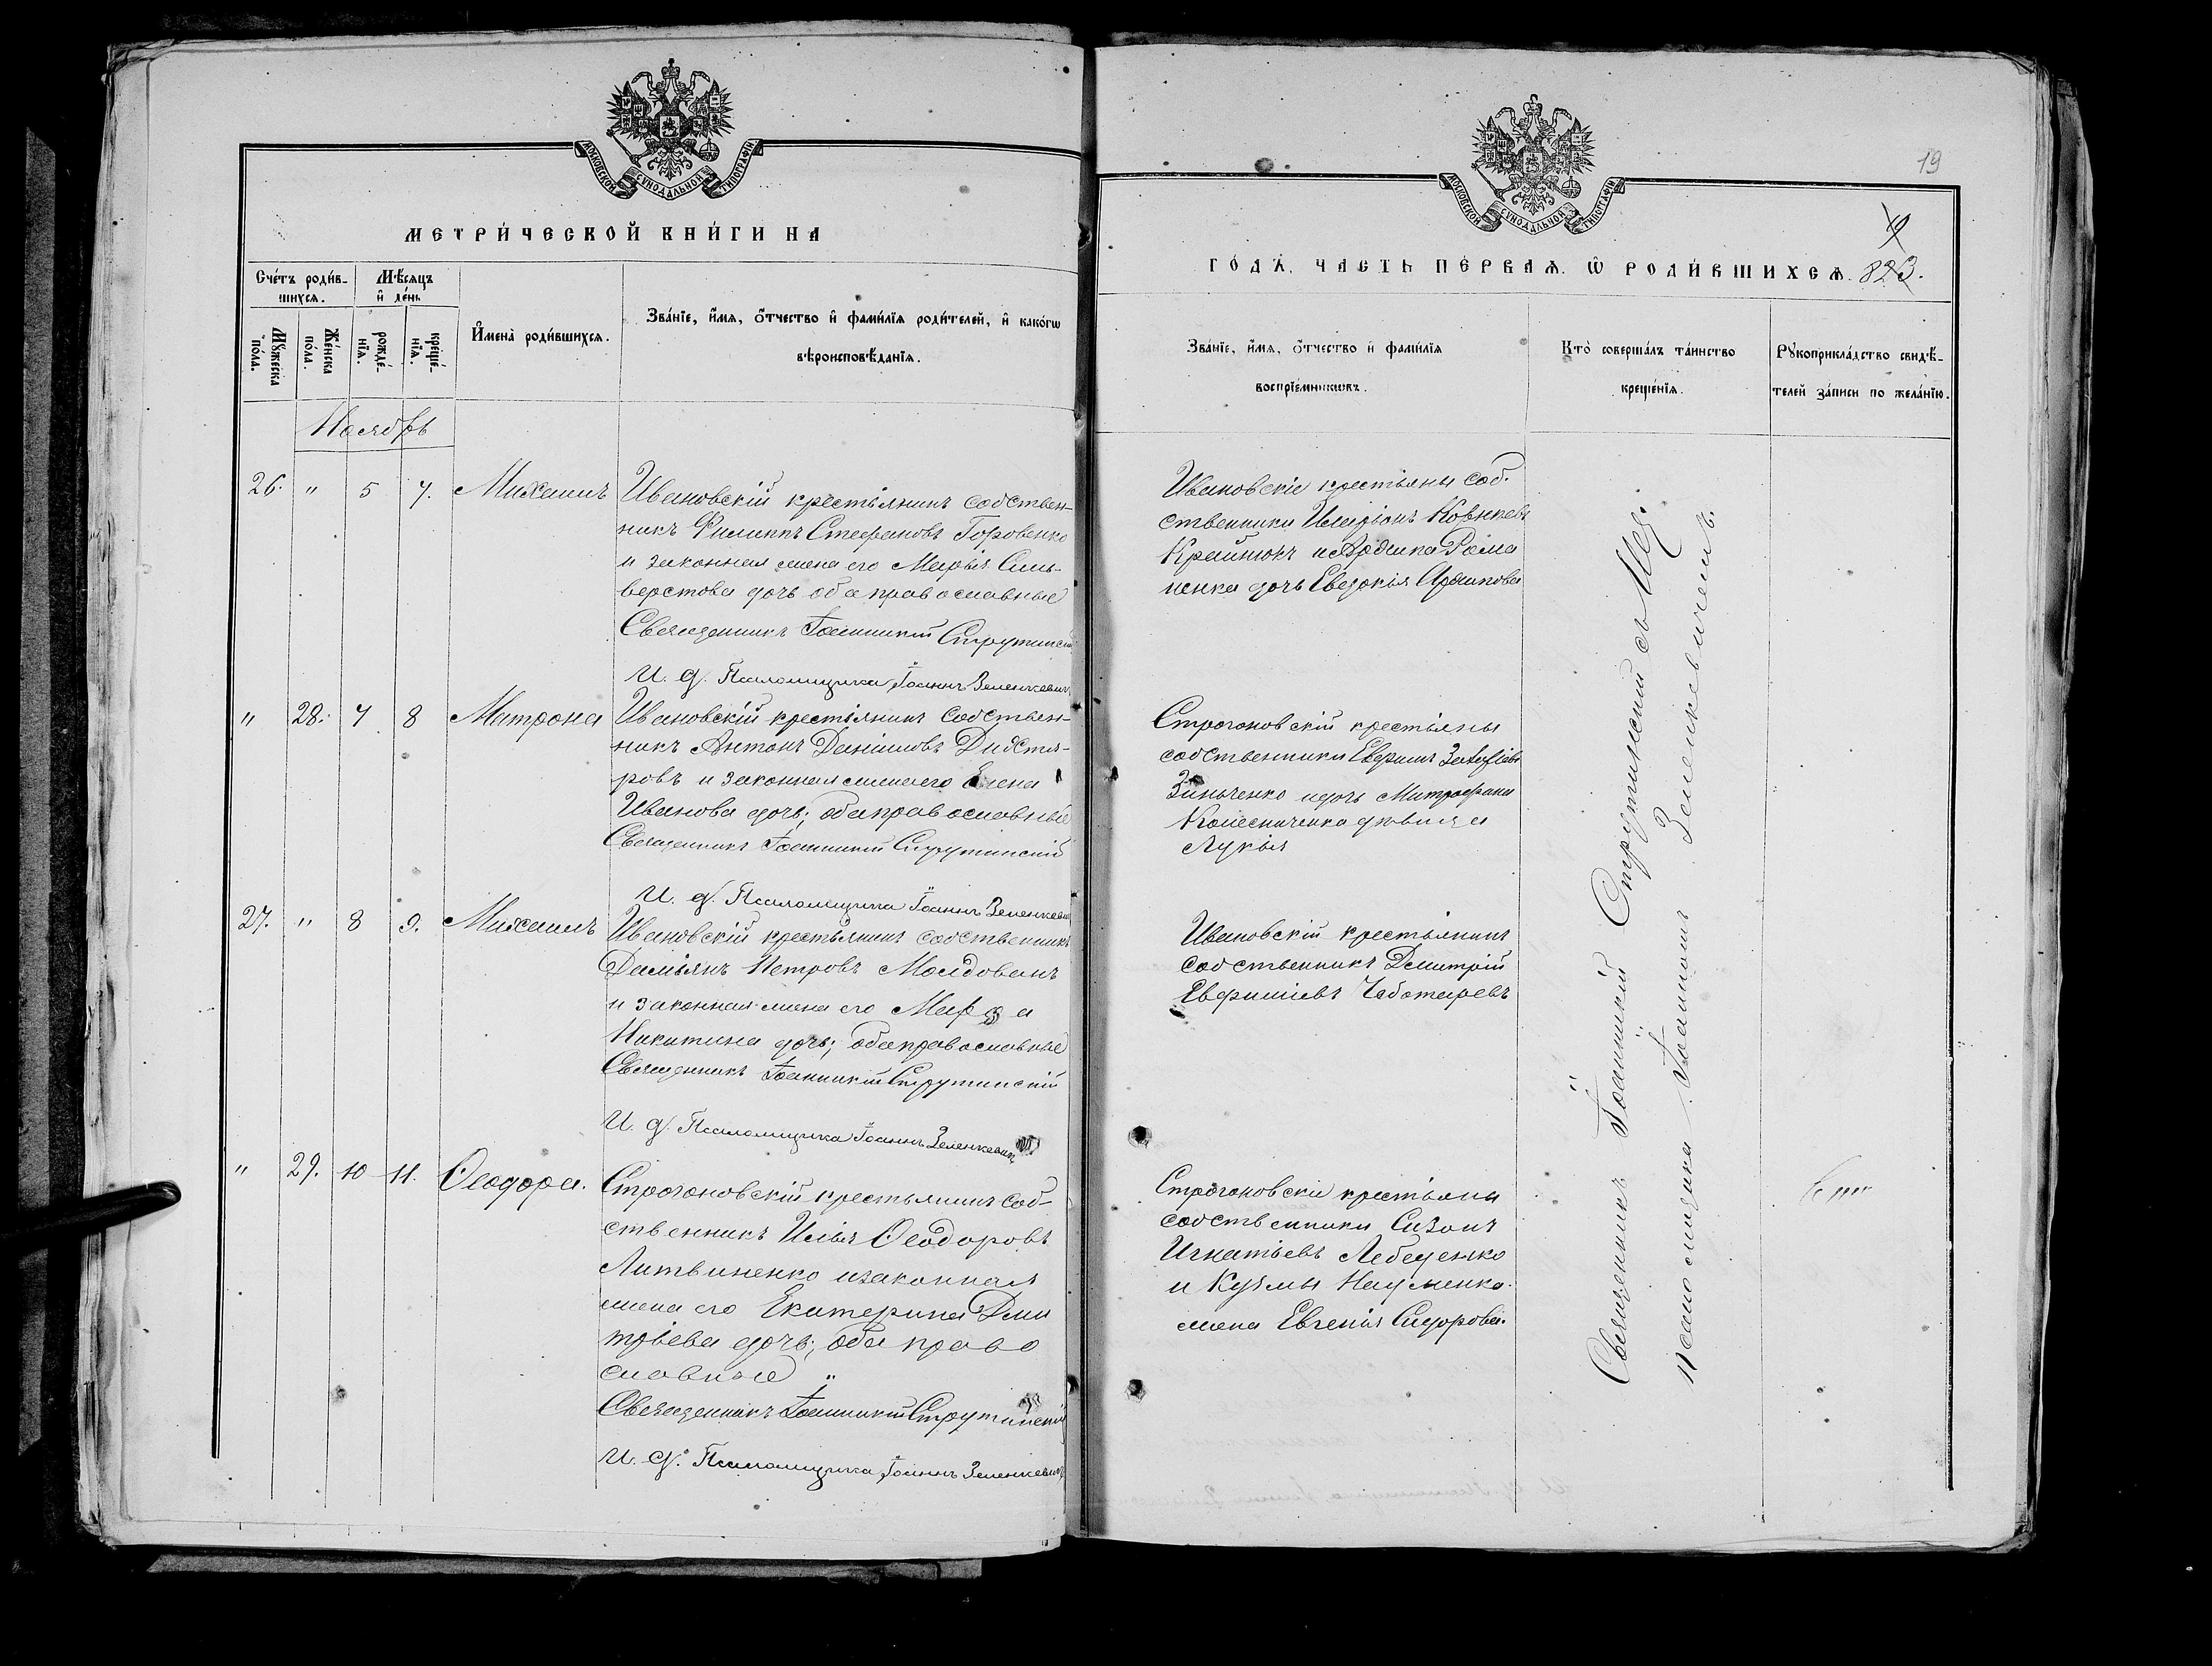 МОСКОВСКОЙ СѴНОДАЛЬНОЙ ТИПОГРАФІИ
МЕТРИ́ЧЕСКОЙ КНИ́ГИ НА
Сче́тъ роди́в-
шихсѧ.
Мѣ́сѧцъ
и҆ де́нь
Мꙋ́жеска
по́ла.
Же́нска
по́ла.
рожде́-
нїѧ.
креще́-
нїѧ.
И҆мена̀ роди́вшихсѧ.
Зва́нїе, и҆́мѧ, ѻ҆́тчество и҆ фами́лїѧ роди́телей, и҆ како́гѡ
вѣроисповѣ́данїѧ.
Ноябрь
26. " 5 7. Михаилъ
Ивановскій крестьянинъ собствен-
никъ Филиппъ Стефановъ Горовенко
и законная жена его Марія Силь-
верстова дочь оба православные
Священникъ Іоанникій Струтинскій
И. д. Псаломщика Іоаннъ Зеленкевичъ
" 28. 7 8 Матрона
Ивановскій крестьянинъ собствен-
никъ Антонъ Даніиловъ
ровъ и законная жена его Елена
Иванова дочь; оба православные
Священникъ Іоанникій Струтинскій
И. д. Псаломщика Іоаннъ Зеленкевичъ
27. " 8 9. Михаилъ
Ивановскій крестьянинъ собственникъ
Даміянъ Петровъ Молдованъ
и законная жена его Марѳа
Никитина дочь; оба православные
Священникъ Іоанникій Струтинскій
И. д. Псаломщика Іоаннъ Зеленкевичъ
" 29. 10 11. Ѳеодора.
Строгоновскій крестьянинъ соб-
ственникъ Илья Ѳеодоровъ
Литвиненко и законная
жена его Екатерина Дми
тріева дочь; оба право
славные
Священникъ Іоанникій Струтинскій
И. д. Псаломщика Іоаннъ Зеленкевичъ
МОСКОВСКОЙ СѴНОДАЛЬНОЙ ТИПОГРАФІИ
19
ГО́ДЪ, ЧАСТЬ ПЕ́РВАѦ. Ѽ РОДИ́ВШИХСѦ. 823.
Зва́нїе, и҆́мѧ, ѻ҆́тчество и҆ фами́лїѧ
воспрїе́мникѡвъ.
Кто̀ соверша́лъ та́инство
креще́нїѧ.
Рꙋкоприкла́дство свидѣ́-
телей за́писи по жела́нїю.
Ивановскіе крестьяны соб-
ственники Иларіонъ
Крайнюкъ и Рома
ненка дочь Евдокія
Строгоновскій крестьяны
собственники Ефимъ
Зинченко и дочь Митрофана
Колесниченка дѣвица
Лукія
Ивановскій крестьянинъ
собственникъ Дмитрій
Евфиміевъ Чаботаревъ
Строгоновскіе крестьяны
собственники Сизонъ
Игнатьевъ Лебеденко
и Кузмы Науменка
жена Евгенія Сидорова.
Священникъ Іоанникій Струтинскій съ
псаломщика Іоанномъ Зеленкевичемъ.